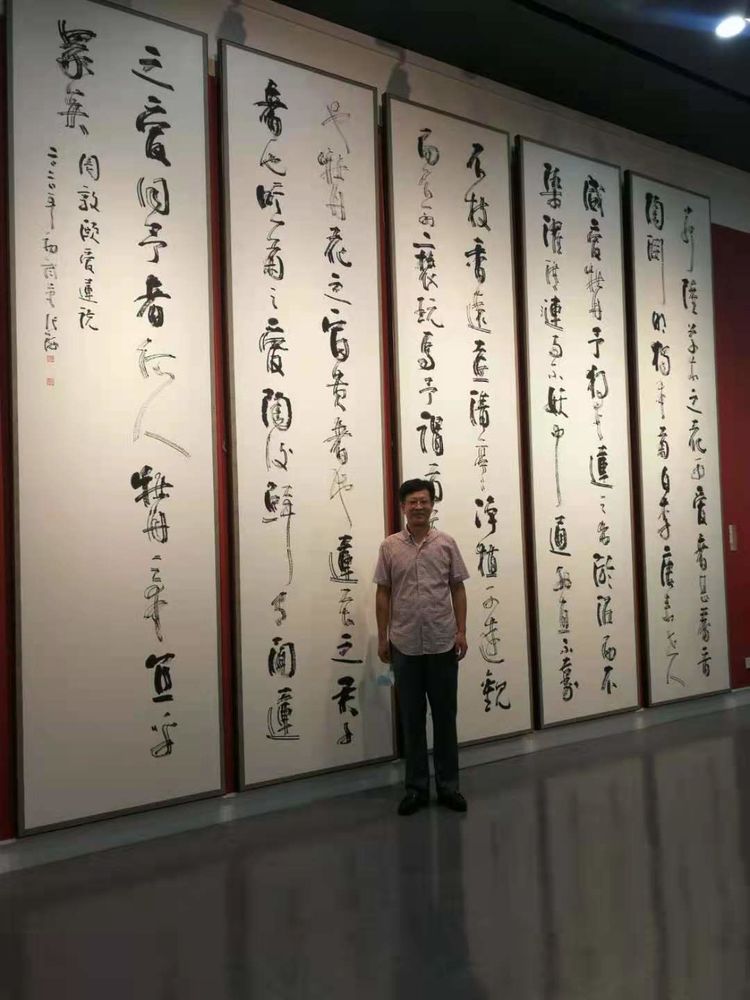 水陸草木之花可愛者甚蕃晉
陶淵明獨愛菊自李唐來世人
盛愛牡丹予獨愛蓮之出淤泥而不
染濯清漣而不妖中通外直不蔓
不枝香遠益清亭亭淨植可遠觀
而不可褻玩焉予謂菊
牡丹花之富貴者也蓮花之君子
者也噫菊之愛陶後鮮有聞蓮
之愛同予者何人牡丹之愛宜乎
眾矣
周敦頤愛蓮說
二〇二〇年